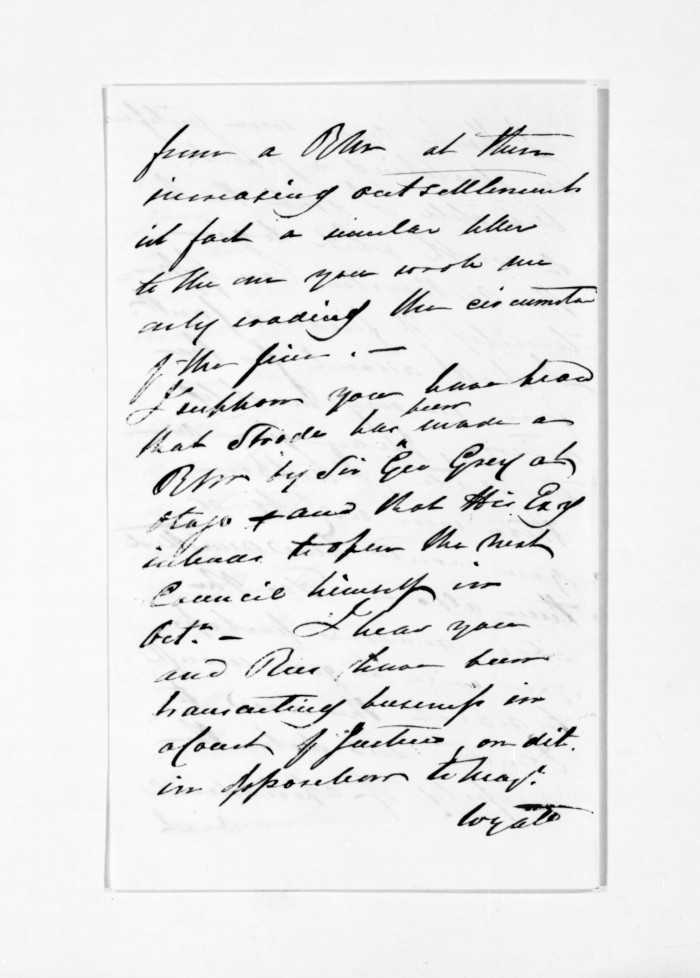 from a RM at these
increasing out settlements
in fact a similar letter
to the one you wrote me
only evading the circumstce
of the fine. —
I suppose you have heard
that Strode has been made a
RM by Sir Geo Grey at
Otago & and that His Exy
intends to open the next
Council himself in
Octr. — I hear you
and Rees have been
transacting business in
a Court of Justice, on dit.
in opposition to Majr.
Wyatt